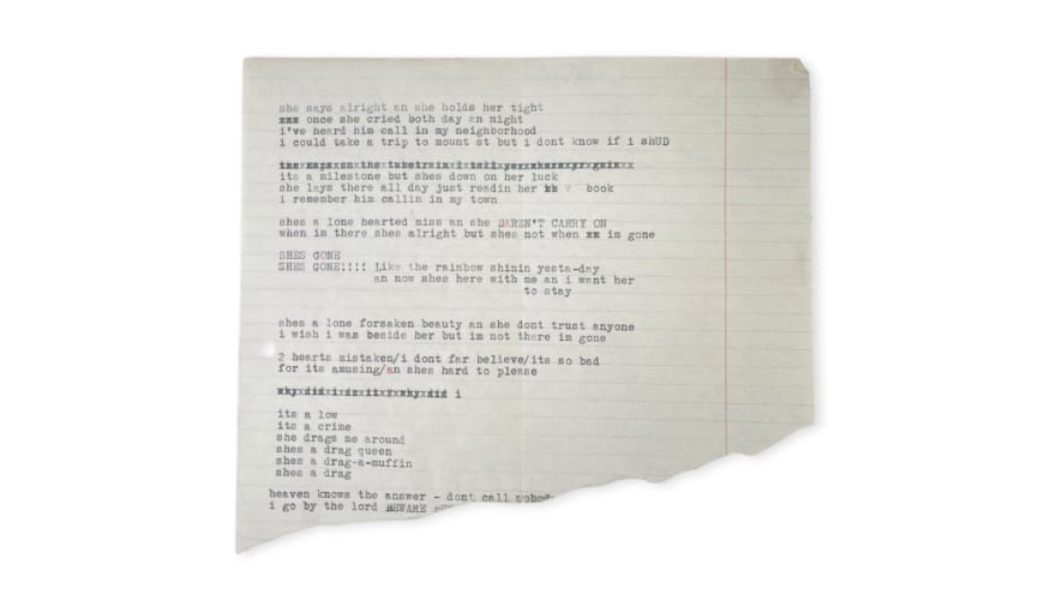 she says alright an she holds her tight
xxx once she cried both day an night
i've heard him call in my neighborhood
i could take a trip to mount st but i dont know if i shUD
its a milestone but shes down on her luck
she lays there all day just readin her book
i remember him callin in my town
shes a lone hearted miss an she DAREN'T CARRY ON
when im there shes alright but shes not when xx im gone
SHES GONE
SHES GONE!!!! Like the rainbow shinin yesta-day
an now shes here with me an i want her
to stay
shes a lone forsaken beauty an she dont trust anyone
i wish i was beside her but im not there im gone
2 hearts mistaken/i dont far believe/its so bad
for its amusing/an shes hard to please
i
its a low
its a crime
she drags me around
shes a drag queen
shes a drag-a-muffin
shes a drag
heaven knows the answer - dont call
i go by the lord BEWARE